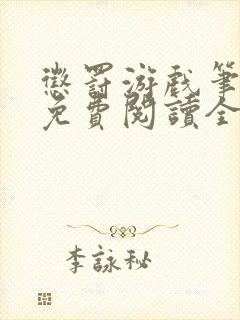 懲罰游戲筆
免費閱讀全
李詠秘